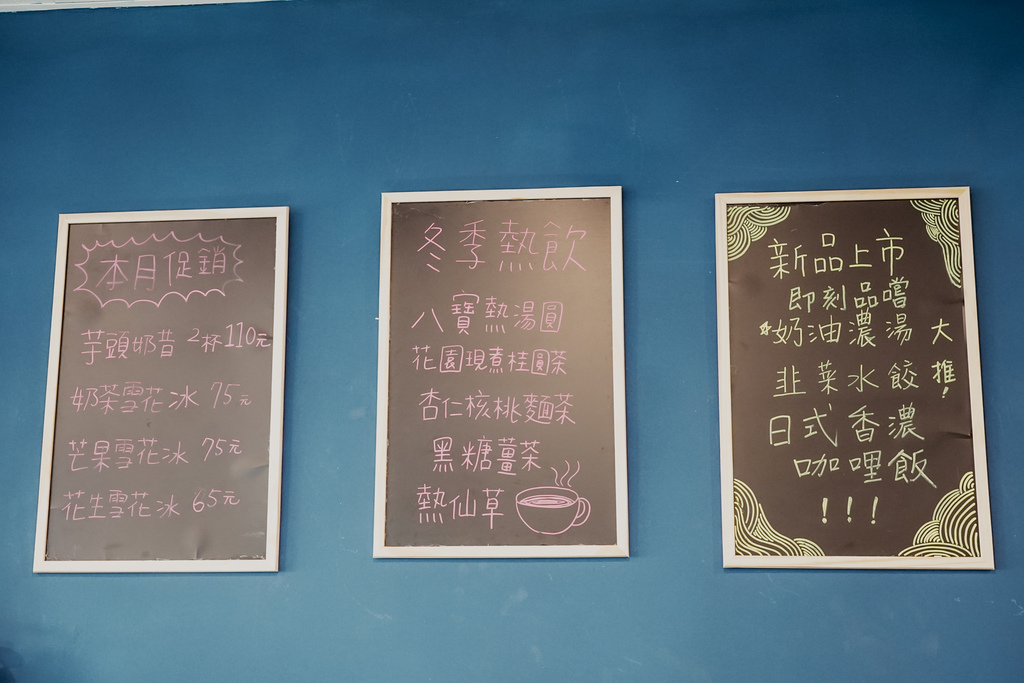 本月促銷
芋頭奶昔 2杯110元
奶茶雪花冰 75元
芒果雪花冰 75元
花生雪花冰 65元
冬季熱飲
八寶熱湯圓
花園現煮桂圓茶
杏仁核桃麵茶
黑糖薑茶
熱仙草
新品上市
即刻品嚐
奶油濃湯
韭菜水餃
日式香濃
咖哩飯
!!!
大推!